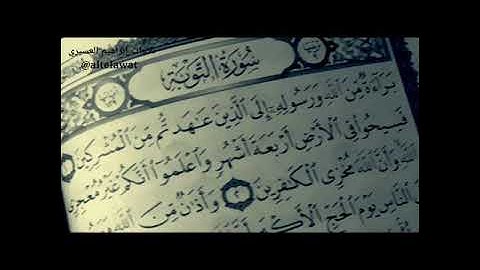 إبراهيم العسيري
@altelawat
سُورَةُ التَّوْبَةِ
بَرَاءَةٌ مِّنَ اللَّهِ وَرَسُولِهِ إِلَى الَّذِينَ عَاهَدتُّم مِّنَ الْمُشْرِكِينَ
فَسِيحُوا فِي الْأَرْضِ أَرْبَعَةَ أَشْهُرٍ وَاعْلَمُوا أَنَّكُمْ غَيْرُ مُعْجِزِي
اللَّهِ وَأَنَّ اللَّهَ مُخْزِي الْكَافِرِينَ ٢ وَأَذَانٌ مِّنَ اللَّهِ
النَّاسِ يَوْمَ الْحَجِّ الْأَكْبَرِ